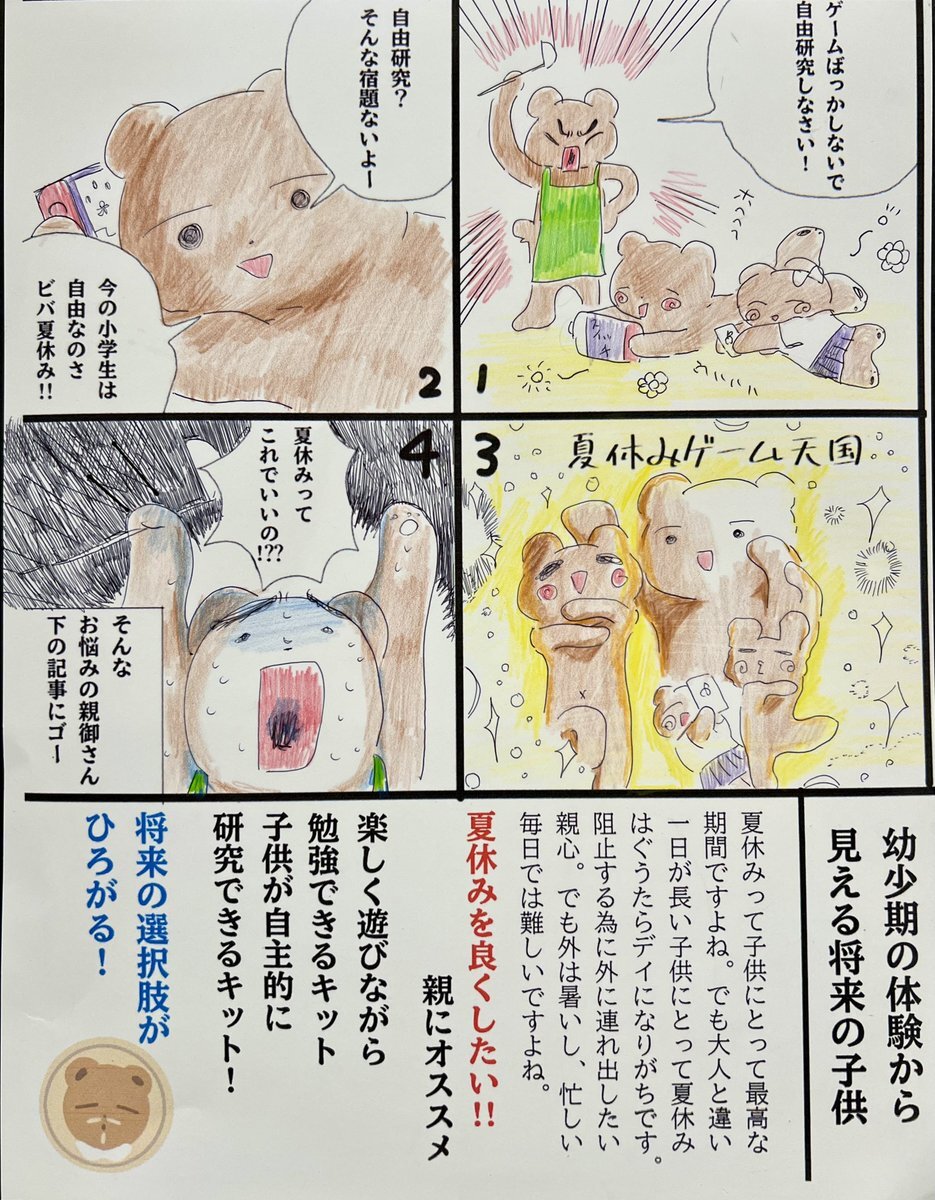 ゲームばっかしないで
自由研究しなさい!
スイッチ
1
自由研究?
そんな宿題ないよー
今の小学生は
自由なのさ
ビバ夏休み!!
2
3
夏休みゲーム天国
4
夏休みって
これでいいの
!??
そんな
お悩みの親御さん
下の記事にゴー
幼少期の体験から
見える将来の子供
夏休みって子供にとって最高な
期間ですよね。でも大人と違い
一日が長い子供にとって夏休み
はぐうたらデイになりがちです。
阻止する為に外に連れ出したい
親心。でも外は暑いし、忙しい
毎日では難しいですよね。
夏休みを良くしたい!!
親にオススメ
楽しく遊びながら
勉強できるキット
子供が自主的に
研究できるキット!
将来の選択肢が
ひろがる!